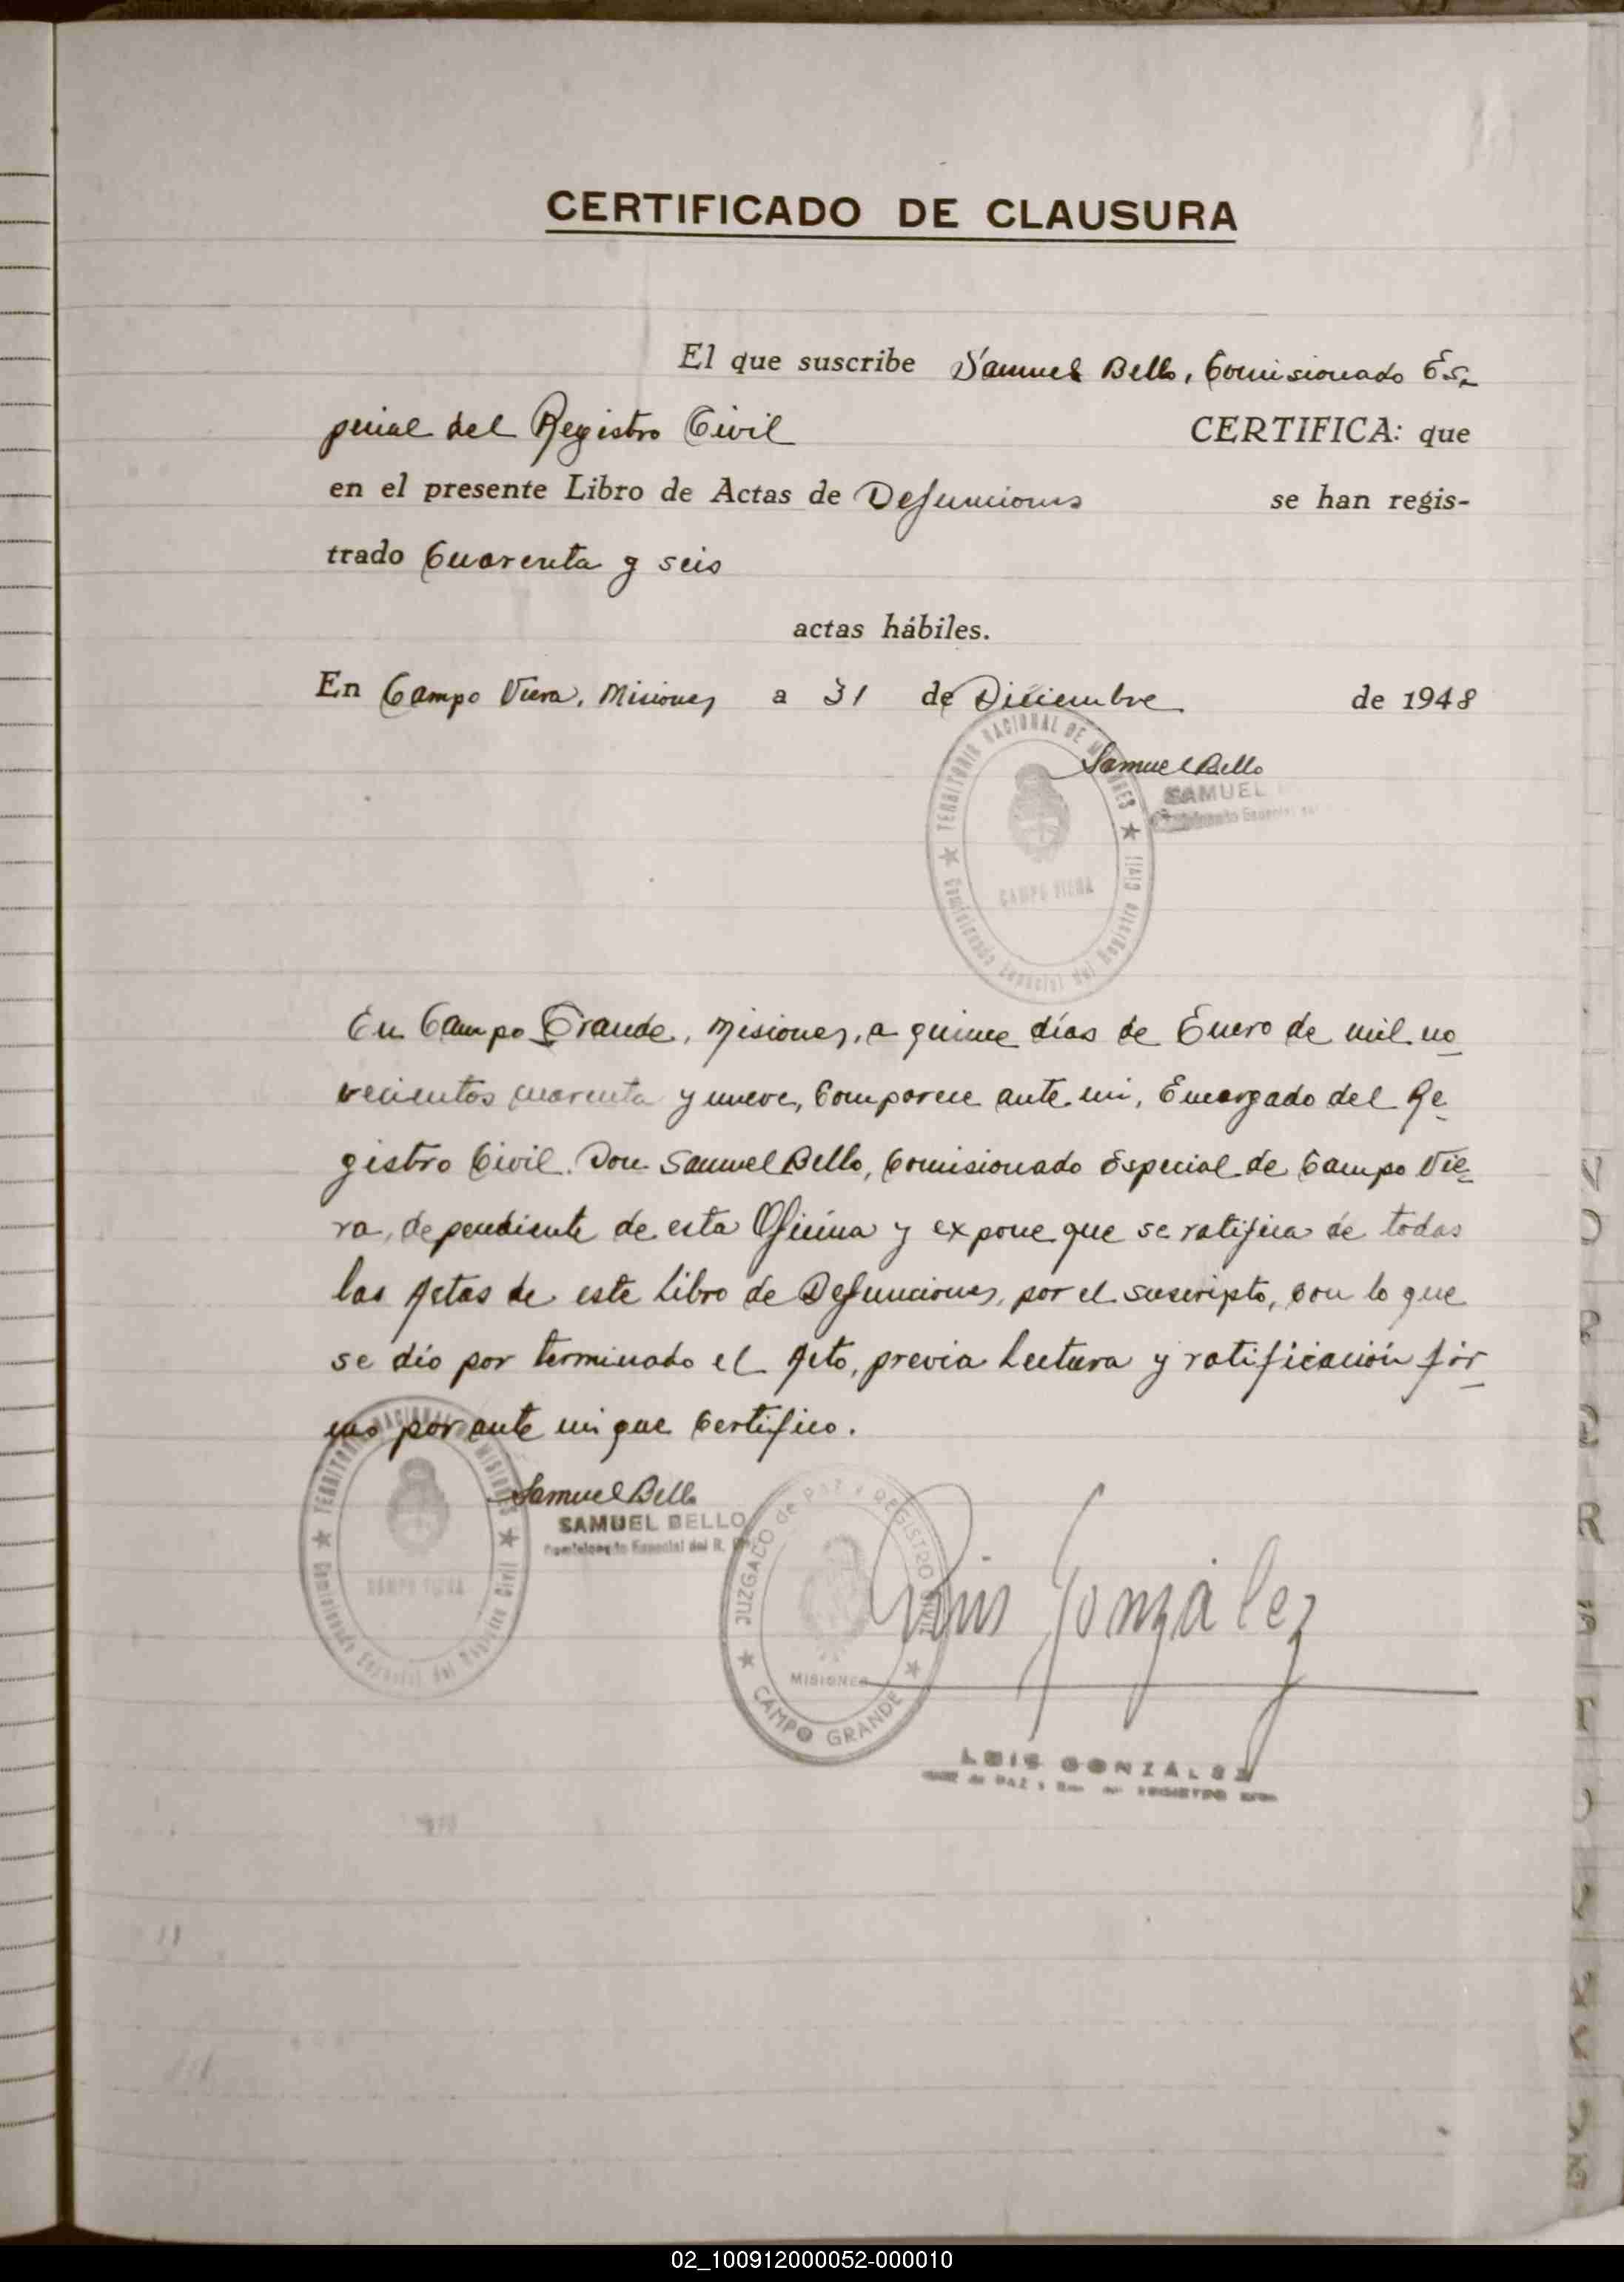 CERTIFICADO DE CLAUSURA
El que suscribe Samuel Bello, Comisionado Es-
pecial del Registro Civil CERTIFICA: que
en el presente Libro de Actas de Defunciones se han regis-
trado Cuarenta y seis
actas hábiles.
En Campo Viera, Misiones a 31 de Diciembre de 1948
Samuel Bello
SAMUEL
TERRITORIO NACIONAL DE MISIONES
CAMPO VIERA
Comisionado Especial del Registro Civil
En Campo Grande, Misiones, a quince días de Enero de mil no
vecientos cuarenta y nueve, Comparece ante mi, Encargado del Re
gistro Civil. Don Samuel Bello, Comisionado Especial de Campo Vie-
ra, dependiente de esta Oficina y expone que se ratifica de todas
las Actas de este Libro de Defunciones, por el suscripto, con lo que
se dío por terminado el Acto, previa Lectura y ratificación fir
mo por ante mi que Certifico.
Samuel Bello
SAMUEL BELLO
Comisionado Especial del R.
TERRITORIO NACIONAL DE MISIONES
CAMPO VIERA
Comisionado Especial del Registro Civil
JUZGADO de PAZ y REGISTRO CIVIL
MISIONES
CAMPO GRANDE
Luis González
LUIS GONZALEZ
JUEZ de PAZ y REGISTRO
02_100912000052-000010